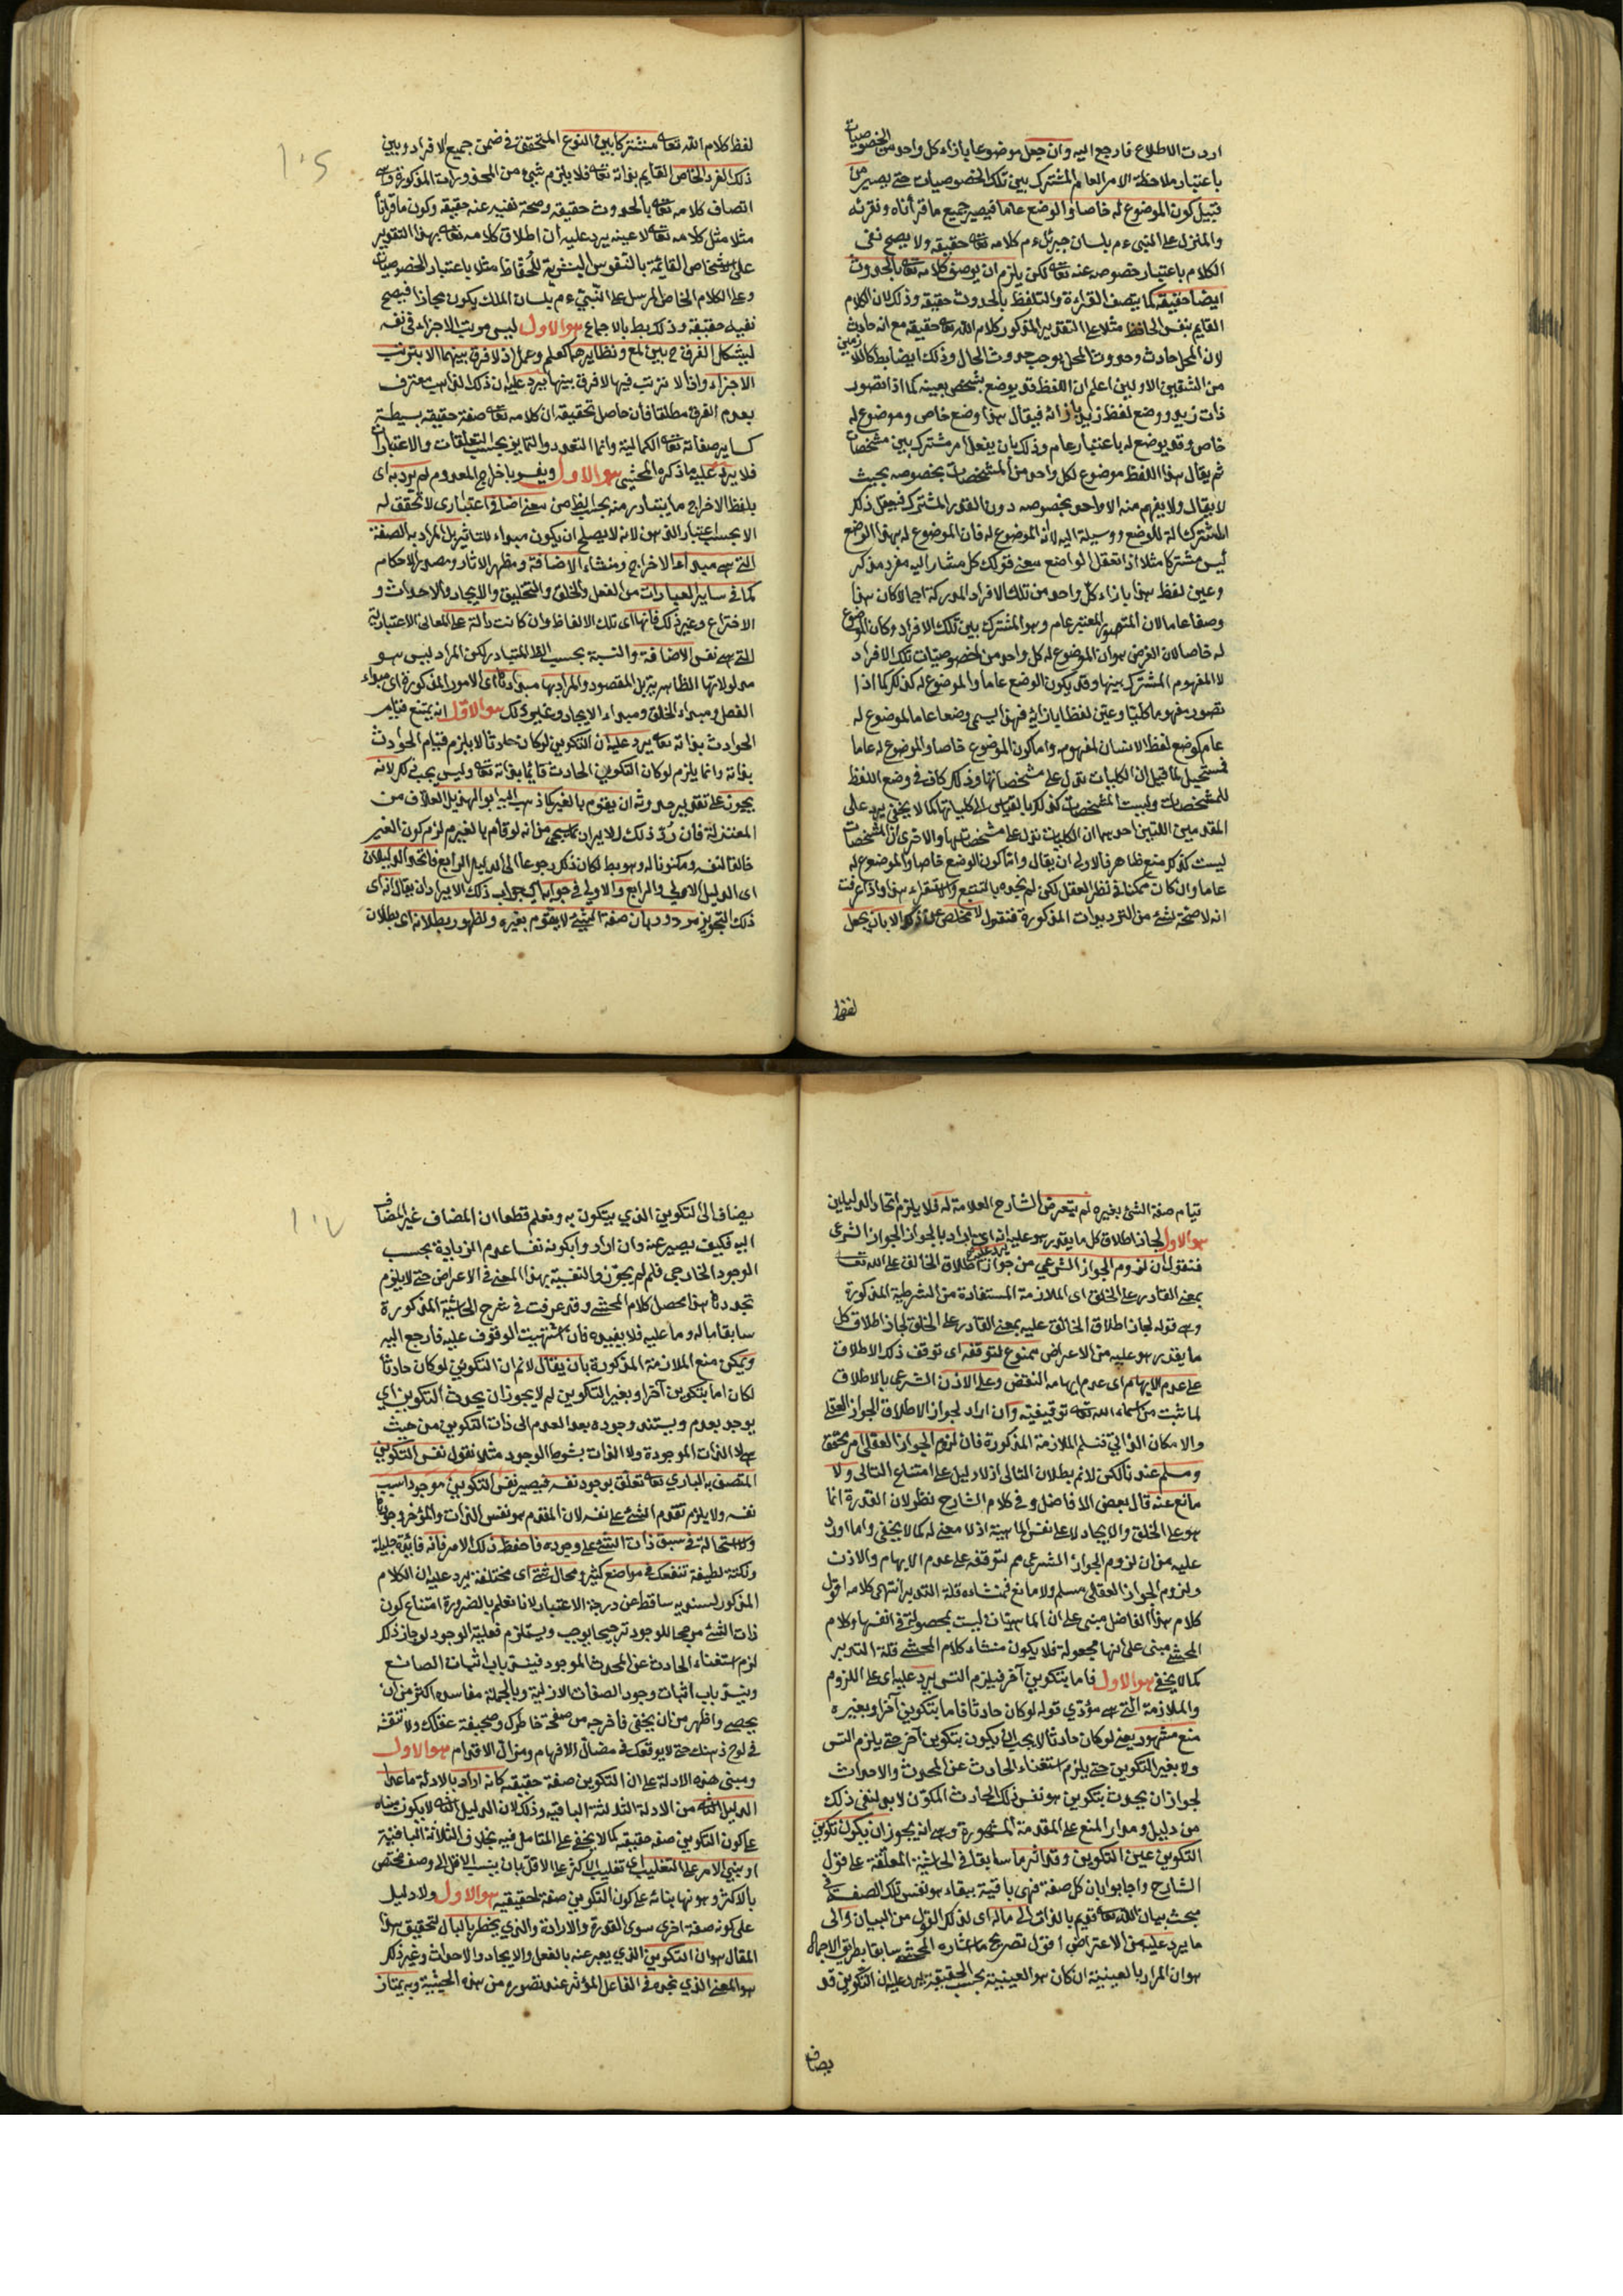 اردت الاطلاع فارجع اليه وان جعل موضوعا بازاء كل واحد من الخصوصيات
باعتبار ملاحظة الامر العام المشترك بين تلك الخصوصيات حتى يصير من
قبيل كون الموضوع له خاصا والوضع عاما فيصير جميع ما قرأناه ونقرئه
والمنزل على النبي ءم بلسان جبرئل ءم كلامه تعه حقيقه ولا يصح نفى
الكلام باعتبار خصوصه عنه تعه لكن يلزم ان يوصف كلامه تعه بالحدوث
ايضا حقيقه كما يتصف القراءة والتلفظ بالحدوث حقيقه وذلك لان الكلام
القايم بنفس الحافظ مثلا على التقدير المذكور كلام الله تعه حقيقه مع انه حادث
لان المحل حادث وحدوث المحل يوجب حدوث الحال وذلك ايضا بط كاللازمين
من الشقين الاولين اعلم ان اللفظ قد يوضع بشخص بعينه كما اذا تصور
ذات زيد ووضع لفظ زيد بازائه فيقال هذا وضع خاص وموضوع له
خاص وقد يوضع له باعتبار عام وذلك بان يفعل امر مشترك بين مشخصات
ثم يقال هذا اللفظ موضوع لكل واحد من المشخصات بخصوصه بحيث
لا يقال ولا يفهم منه الا واحد بخصوصه دون القدر المشترك فيجعل ذلك
المشترك الة للوضع ووسيلة اليه لا انه الموضوع له فان الموضوع له بهذا الوضع
ليس مشتركا مثلا اذا تعقل الواضع معنى قولك كل مشار اليه مفرد مذكر
وعين لفظ هذا بازاء كل واحد من تلك الافراد المدركة اجمالا كان هذا
وضعا عاما لان المتصور المعتبر عام وهو المشترك بين تلك الافراد وكان الموضوع
له خاصا لان الفرض هو ان الموضوع له كل واحد من خصوصيات تلك الافراد
لا المفهوم المشترك بينها وقد يكون الوضع عاما والموضوع له كذلك كما اذا
تصور مفهوما كليا وعين لفظا بازائه فهذا يسمى وضعا عاما لموضوع له
عام كوضع لفظ الانسان لمفهومه واما كون الموضوع خاصا والموضوع له عاما
فمستحيل لما قيل ان الكليات تدل على مشخصاتها وذلك كاف في وضع اللفظ
للمشخصات وليست المشخصات كذلك بالقياس الى كلياتها كما لا يخفى يرد على
المقدمين اللتين احديهما ان الكليات تدل على مشخصاتها والاخرى ان المشخصات
ليست كذلك منع ظاهر فالاولى ان يقال واما كون الوضع خاصا والموضوع له
عاما وان كان ممكنا في نظر العقل لكن لم يجده بالتتبع والاستقراء هذا واذا عرفت
انه لا صحة لشئ من الترديدات المذكورة فنقول لا مخلص عن ذلك الا بان يجعل
لفظ
لفظ كلام الله تعه مشتركا بين النوع المتحقق في ضمن جميع الافراد وبين
ذلك الفرد الخاص القايم بذاته تعه فلا يلزم شئ من المحذورات المذكورة من
اتصاف كلامه تعه بالحدوث حقيقه وصحة نفيه عنه حقيقه وكون ما قرأنا
مثلا مثل كلامه تعه لا عينه يرد عليه ان اطلاق كلامه تعه بهذا التقدير
على الاشخاص القائمة بالنفوس البشرية للحفاظ مثلا باعتبار الخصوصيات
وعلى الكلام الخاص المرسل على النبي ءم بلسان الملك يكون مجازا فيصح
نفيه حقيقة وذلك بط بالاجماع هو الاول ليس مرتب الاجزاء في نفسه
ليشكل الفرق ح بين لمع ونظايرهما كعلم وعمل اذ لا فرق بينهما الا بترتب
الاجزاء واذا لا ترتب فيها لا فرق بينها يرد عليه ان ذلك الذاهب معترف
بعدم الفرق مطلقا فان حاصل تحقيقه ان كلامه تعه صفة حقيقه بسيطة
كساير صفاته تعه الكمالية وانما التعدد والتمايز بحسب التعلقات والاعتبارات
فلا يرد عليه ما ذكره المحشى هو الاول ويفسر باخراج المعدوم لم يرد به اى
بلفظ الاخراج ما يتبادر منه بحسب الظ من معنى اضافى اعتبارى لا تحقق له
الا بحسب اعتبار الذهن لانه لا يصلح ان يكون مبداء للتاثير بل المراد به الصفة
التى هى مبداء الاخراج ومنشاء الاضافة ومظهر الاثار ومصدر الاحكام
كما في ساير العبارات من الفعل والخلق والتخليق والايجاد والاحداث و
الاختراع وغير ذلك فانها اى تلك الالفاظ وان كانت دالة على المعانى الاعتبارية
التى هى نفس الاضافة والنسبة بحسب الظ المتبادر لكن المراد ليس هو
مدلولاتها الظاهرية بل المقصود والمراد بها مبداءها اى الامور المذكورة اى مبداء
الفعل ومبداء الخلق ومبداء الايجاد وغير ذلك هو الاول انه يمتنع قيام
الحوادث بذاته تعه يرد عليه ان التكوين لو كان حادثا لا يلزم قيام الحوادث
بذاته وانما يلزم لو كان التكوين الحادث قائما بذاته تعه وليس يجب ذلك لانه
يجوز على تقدير حدوثه ان يقوم بالغير كما ذهب اليه ابو الهذيل العلاف من
المعتزلة فان رد ذلك الايراد بما سيجئ من انه لو قام بالغير لزم كون الغير
خالقا لنفسه ومكونا له وهو بط لكان ذلك رجوعا الى الدليل الرابع فاتحد الدليلان
اى الدليل الاول والرابع والاولى في جوابه اى جواب ذلك الايراد ان يقال انه اى
ذلك التجويز مردود بان صفة الشئ لا يقوم بغيره ولظهور بطلانه اى بطلان
قيام صفة الشئ بغيره لم يتعرض الشارح العلامة له فلا يلزم اتحاد الدليلين
هو الاول لجاز اطلاق كل ما يقدر هو عليه انه اى ان اراد بالجواز الجواز الشرعى
فنقول ان لزوم الجواز الشرعي من جواز اطلاق الخالق على الله تعه
بمعنى القادر على الخلق اى الملازمة المستفادة من الشرطية المذكورة
وهى قوله لجاز اطلاق الخالق عليه بمعنى القادر على الخلق لجاز اطلاق كل
ما يقدر هو عليه من الاعراض ممنوع لتوقفه اى توقف ذلك الاطلاق
على عدم الايهام اى عدم ايهامه النقص وعلى الاذن الشرعى بالاطلاق
لما ثبت من ان اسماء الله تعه توقيفية وان اراد لجواز الاطلاق الجواز العقلى
والامكان الذاتي نسلم الملازمة المذكورة فان لزوم الجواز العقلى امر محقق
ومسلم عندنا لكن لانم بطلان التالى اذ لا دليل على امتناع التالى ولا
مانع عنه قال بعض الافاضل وفى كلام الشارح نظر لان القدرة انما
هو على الخلق والايجاد لا على نفس الماهية اذ لا معنى له كما لا يخفى واما اورد
عليه من ان لزوم الجواز الشرعى مم لتوقفه على عدم الايهام والاذن
ولزوم الجواز العقلى مسلم ولا مانع فمنشاءه قلة التدبر انتهى كلامه اقول
كلام هذا الفاضل مبنى على ان الماهيات ليست بمجعولة في انفسها وكلام
المحشى مبنى على انها مجعولة فلا يكون منشاء كلام المحشى قلة التدبر
كما لا يخفى هو الاول فاما بتكوين آخر فيلزم التس يرد عليه اى على اللزوم
والملازمة التى هى مؤدي قوله لو كان حادثا فاما بتكوين آخر او بغيره
منع مشهور يعنى لو كان حادثا لا يجب ان يكون بتكوين آخر حتى يلزم التس
ولا بغير التكوين حتى يلزم استغناء الحادث عن المحدث والاحداث
لجواز ان يحدث بتكوين هو نفس ذلك الحادث المكون لابد لنفى ذلك
من دليل ومدار المنع على المقدمة المشهورة وهى انه يجوز ان يكون تكوين
التكوين عين التكوين وقد اثر ما سابقا في الحاشية المعلقة على قول
الشارح واجابوا بان كل صفة فهى باقية ببقاء هو نفس تلك الصفة في
مبحث بيان ان الله تعه قديم بالذات الى ما له اى لذلك القول من البيان والى
ما يرد عليه من الاعتراض اقول تصريح ما اشاره المحشى سابقا بطريق الاجمال
هو ان المراد بالعينية ان كان هو العينية بحسب الحقيقة يرد عليه ان التكوين قد
يضاف
يضاف الى التكوين الذي يتكون به ونعلم قطعا ان المضاف غير المضاف
اليه فكيف يصير عينه وان اراد وا بكونه نفسا عدم الزيادة بحسب
الوجود الخارجى فلم لم يجوزوا النفسية بهذا المعنى في الاعراض حتى لا يلزم
تجددها هذا محصل كلام المحشى وقد عرفت في شرح الحاشية المذكورة
سابقا ماله وما عليه فلا يفيده فان اشتهيت الوقوف عليه فارجع اليه
ويمكن منع الملازمة المذكورة بان يقال لانم ان التكوين لو كان حادثا
لكان اما بتكوين آخر او بغير التكوين لم لا يجوز ان يحدث التكوين اي
يوجد بعدم ويستند وجوده بعد العدم الى ذات التكوين من حيث
هى لا الذات الموجودة ولا الذات بشرط الوجود مثلا نقول نفس التكوين
المتصف به الباري تعه تعلق بوجود نفسه فيصير نفس التكوين موجدا بسبب
نفسه ولا يلزم تقدم الشئ على نفسه لان المقدم هو نفس الذات والمؤخر وجودها
ولا استحالة في سبق ذات الشئ على وجوده فاحفظ ذلك الامر فانه فائدة جليلة
ونكتة لطيفة تنفعك في مواضع كثيرة ومحال شتى اى مختلفة يرد عليه ان الكلام
المذكور لسنديه ساقط عن درجة الاعتبار لانا نعلم بالضرورة امتناع كون
ذات الشئ مرجحا للوجود ترجيحا يوجب ويستلزم فعلية الوجود لو جاز ذلك
لزم استغناء الحادث عن المحدث الموجود فينسد باب اثبات الصانع
وينسد باب اثبات وجود الصفات الازلية وبالجملة مفاسده اكثر من ان
يحصى واظهر من ان يخفى فاخرجه من صفحة خاطرك وصحيفة عقلك ولا تنقشه
في لوح ذهنك حتى لا يوقعك في مضال الافهام ومزال الاقدام هو الاول
ومبنى هذه الادلة على ان التكوين صفة حقيقيه كانه اراد بالادلة ما عدا
الدليل الثانى من الادلة الثلاثة الباقية وذلك لان الدليل الثانى لا يكون مبناه
على كون التكوين صفة حقيقيه كما لا يخفى على المتامل فيه بخلاف الثلاثة الباقية
او بنى الامر على التغليب اى تغليب الاكثر على الاقل بان ينسب الاقل الى وصف مختص
بالاكثر وهو نها بنائه على كون التكوين صفة حقيقيه هو الاول ولا دليل
على كونه صفة اخرى سوى القدرة والارادة والذي يخطر بالبال لتحقيق هذا
المقال هو ان التكوين الذي يعبر عنه بالفعل والايجاد والاحداث وغير ذلك
هو المعنى الذي نجده في الفاعل المؤثر عند تصوره من هذه الحيثية وبه يمتاز